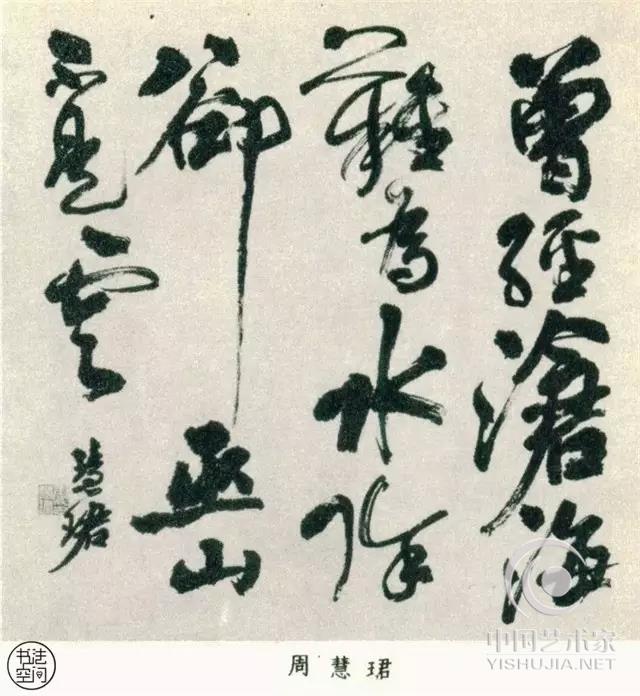 曾經滄海
難為水除
卻巫山
不是雲
慧珺
周慧珺
书法空间
中国艺术家
YISHUJIA.NET